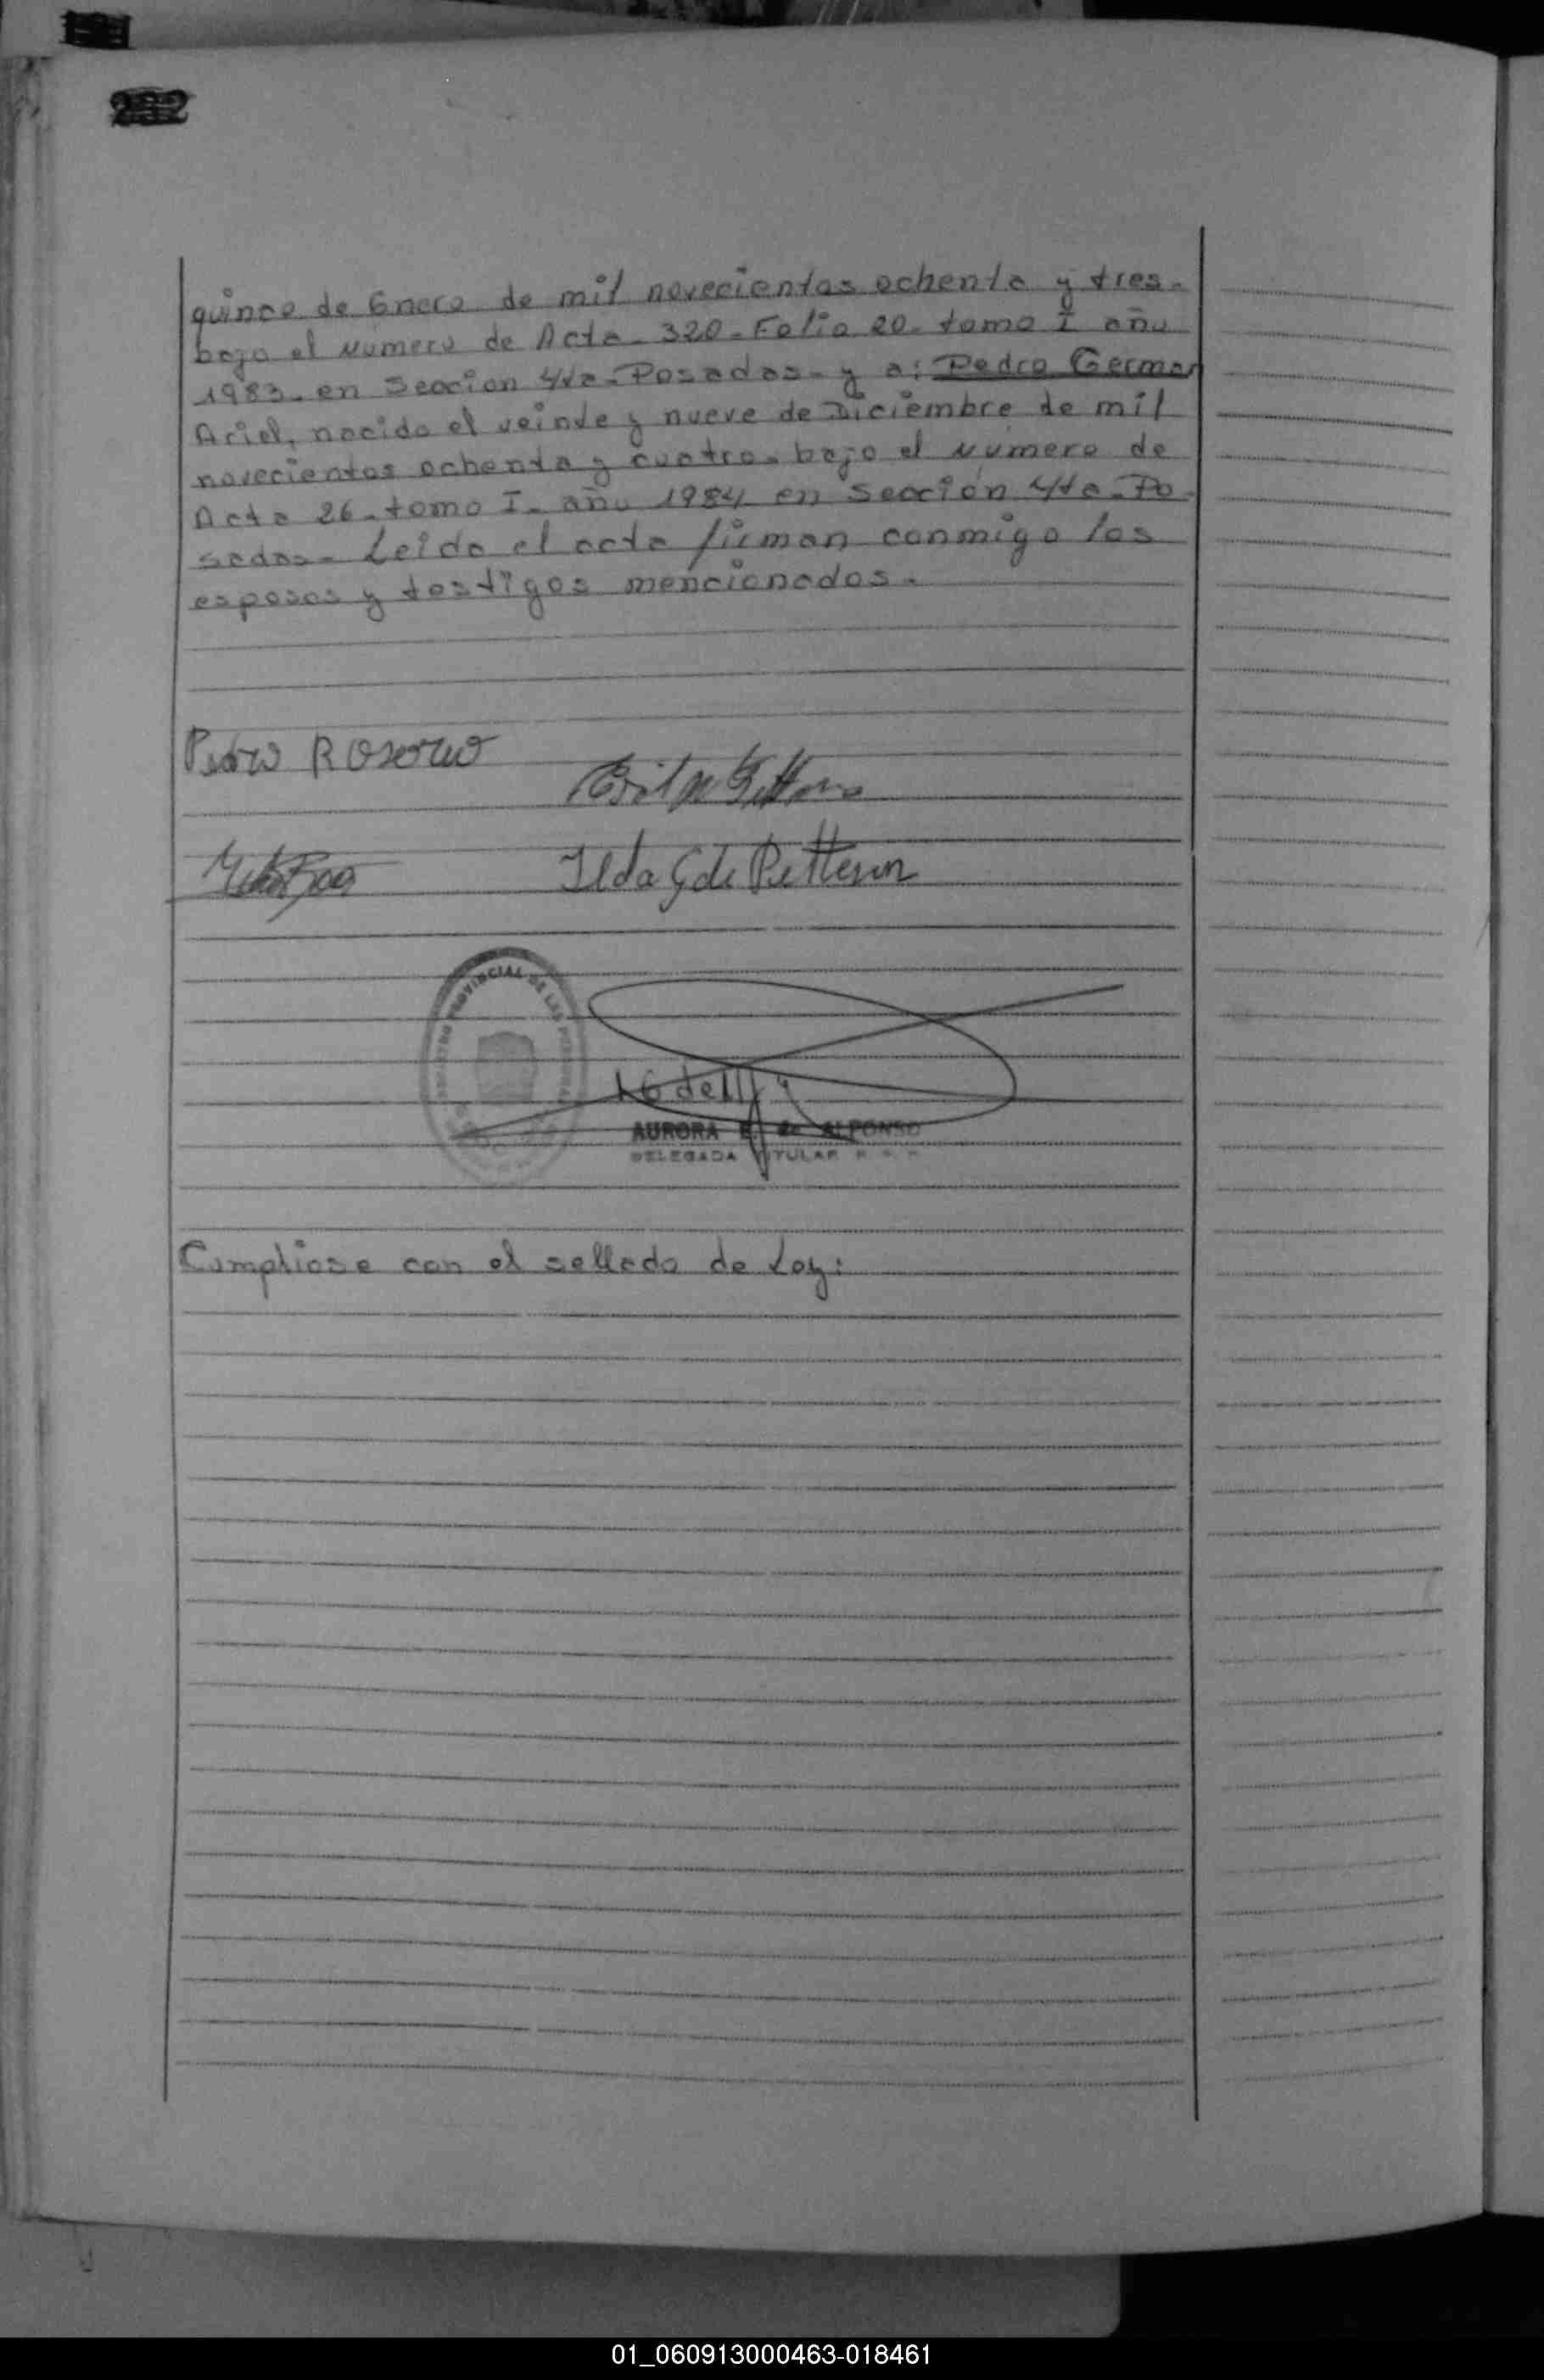 232
quince de Enero de mil novecientos ochenta y tres-
bajo el Número de Acta- 320- Folio 20- tomo I año
1983- en Sección 4ta- Posadas- y a: Pedro German
Ariel, nacido el veinte y nueve de Diciembre de mil
novecientos ochenta y cuatro- bajo el Número de
Acta 26- tomo I- año 1984 en Sección 4ta- Po-
sadas- Leida el acta firman conmigo los
esposos y testigos mencionados.
Ilda G de Petterson
PROVINCIAL DE LAS PERSONAS
AURORA E. de ALFONSO
DELEGADA TITULAR
Cumpliose con el sellado de Ley:
01_060913000463-018461